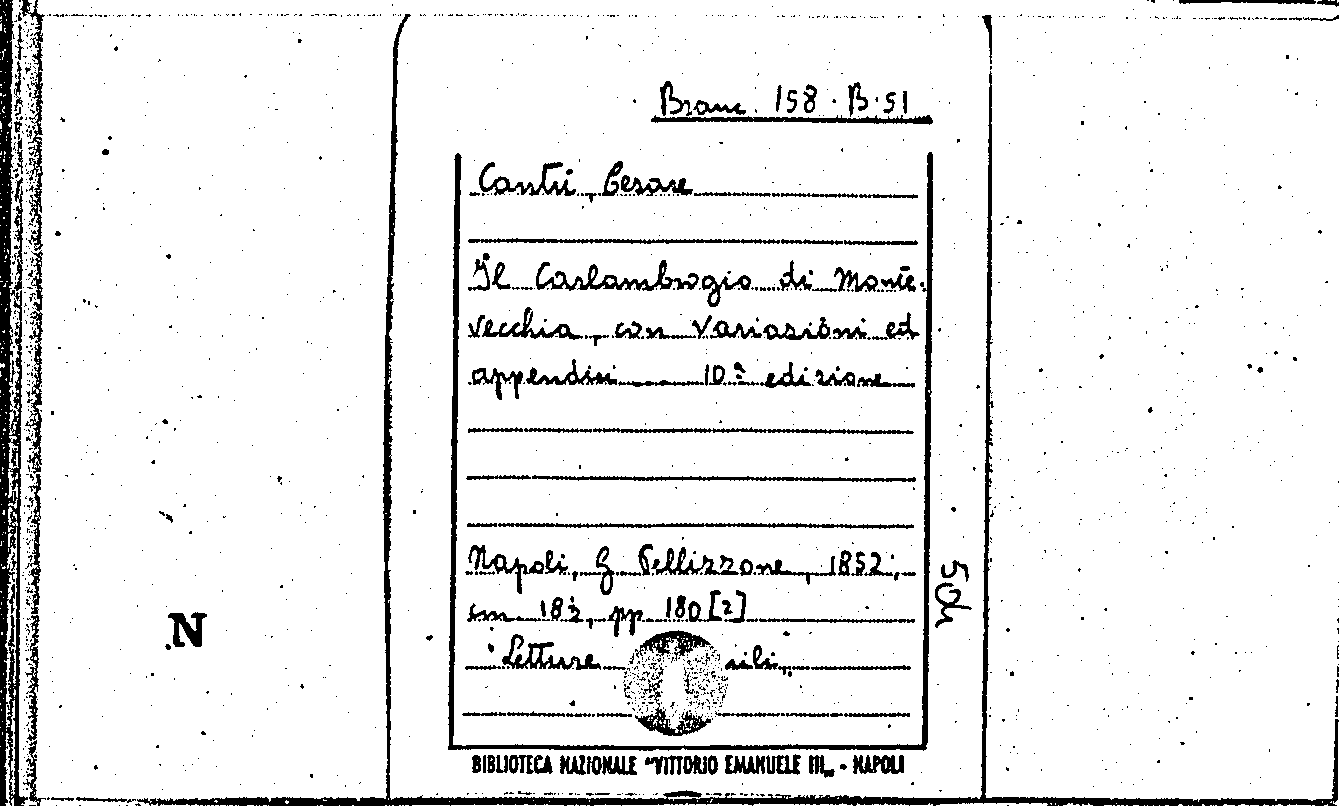 Branc. 158 · B · 51
Cantù, Cesare
Il Carlambrogio di Monte-
vecchia, con variazioni ed
appendici ... 10ª edizione
Napoli, G Pellizzone, 1852;
cm 18½, pp 180 [2]
"Letture
N
BIBLIOTECA NAZIONALE "VITTORIO EMANUELE III„ - NAPOLI